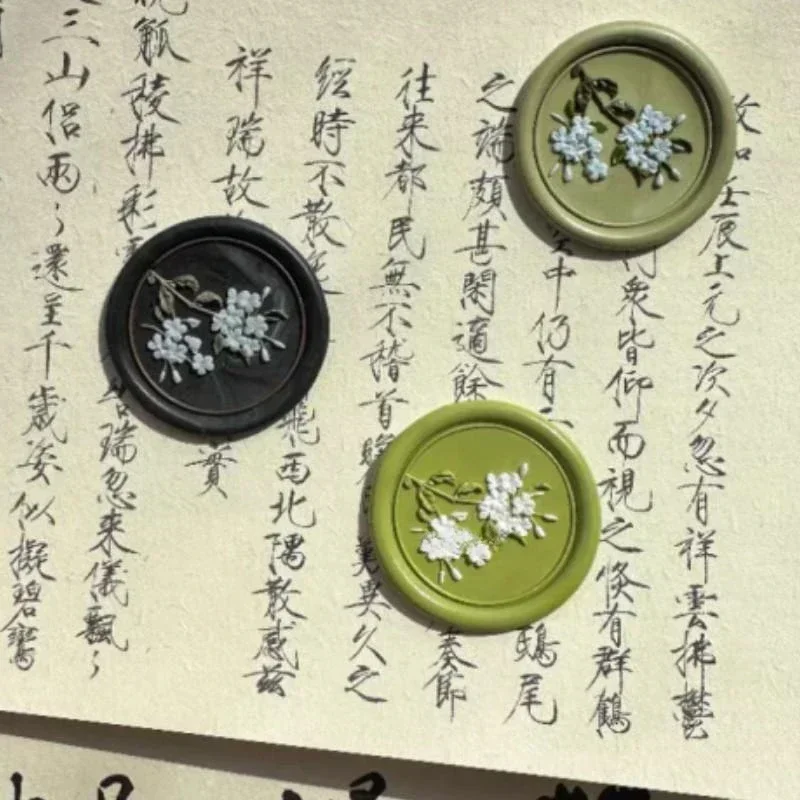 壬辰上元之次夕忽有祥雲拂鬱
眾皆仰而視之倏有群鶴
空中仍有 鴟尾
之端頗甚閑適餘 奏節
往來都民無不稽首 異久之
經時不散 飛西北隅散感茲
祥瑞故 實
觚稜拂彩 告瑞忽來儀飄々
三山侶兩々還呈千歲姿似擬碧鸞